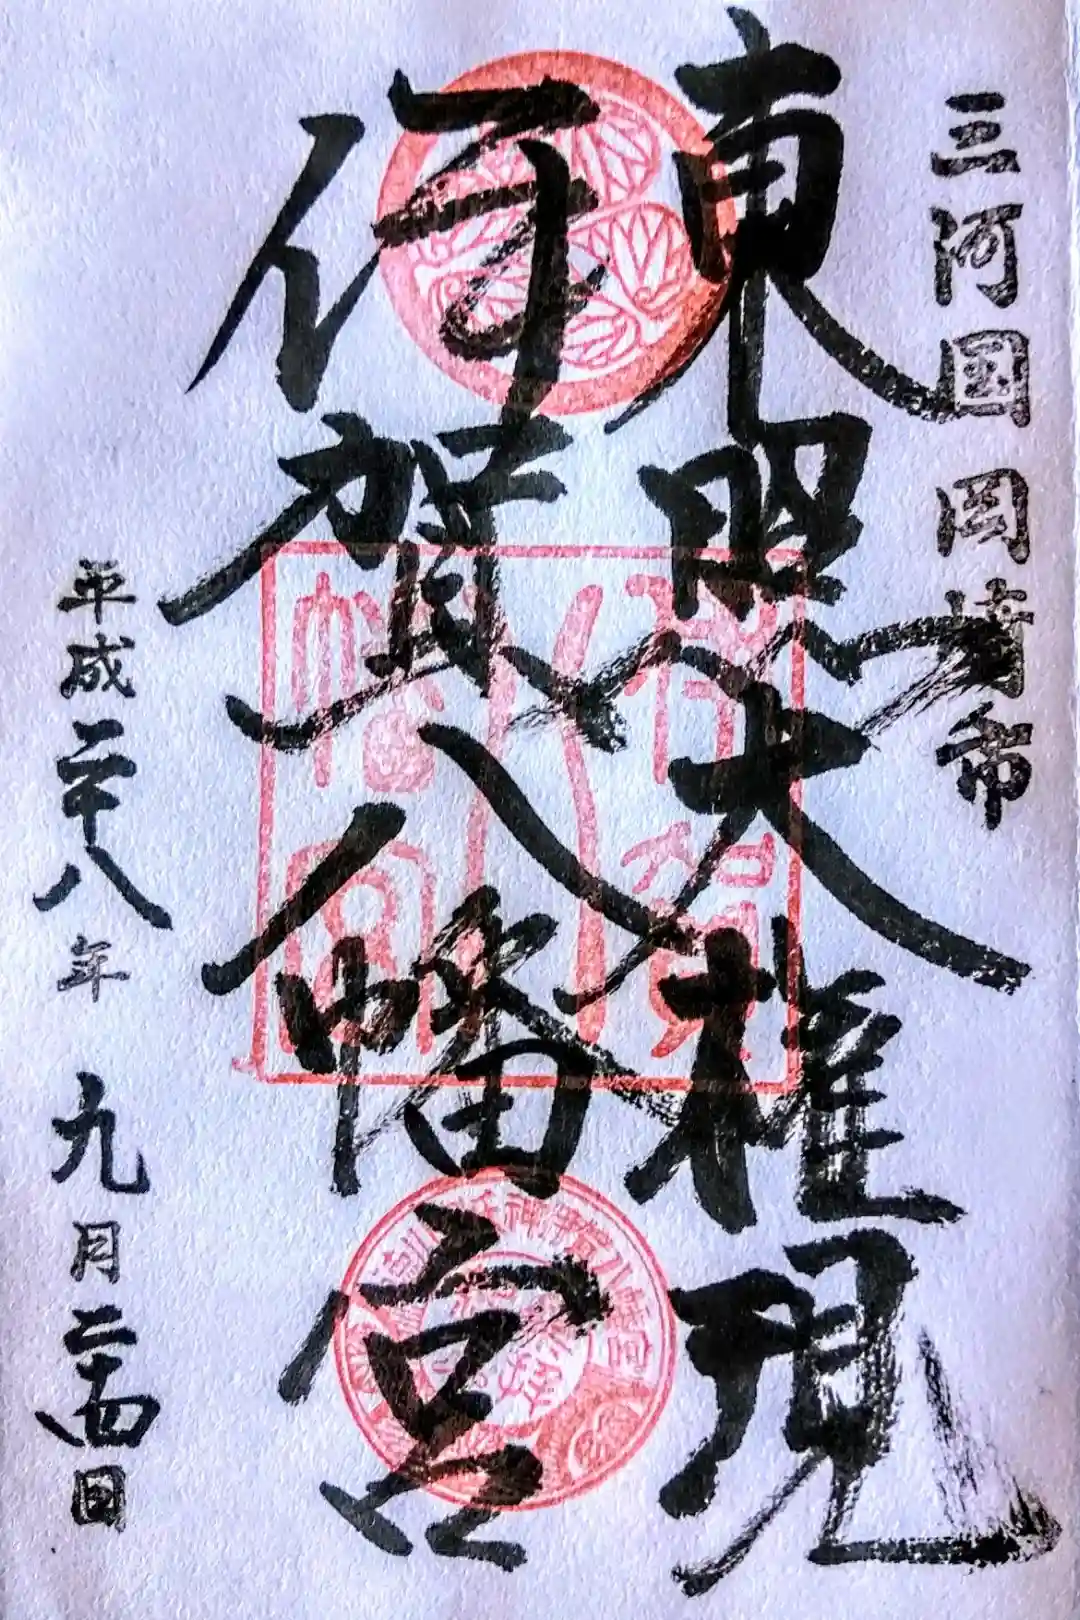 三河國岡崎市
東照大権現
伊賀八幡宮
平成二十八年九月二十四日
伊賀八幡宮